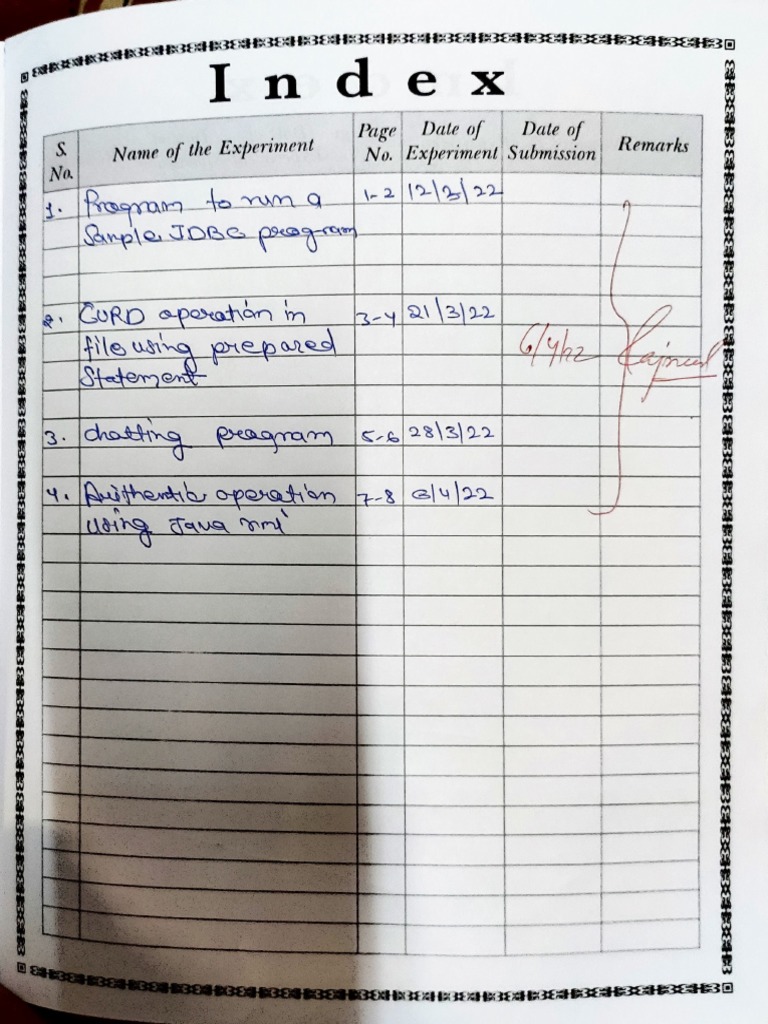 Index
S. No. Name of the Experiment Page No. Date of Experiment Date of Submission Remarks
1. Program to run a 1-2 12/3/22
Sample JDBC program
2. CURD operation in 3-4 21/3/22
file using prepared 6/4/22
Statement
3. chatting program 5-6 28/3/22
4. Authentic operation 7-8 6/4/22
using Java rmi